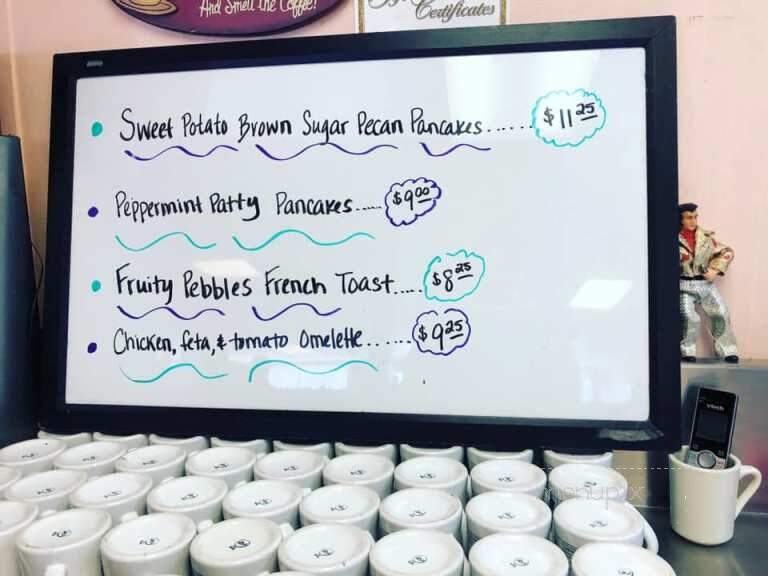 And Smell the Coffee!
Certificates
• Sweet Potato Brown Sugar Pecan Pancakes...... $11.25
• Peppermint Patty Pancakes..... $9.00
• Fruity Pebbles French Toast..... $8.25
• Chicken, feta, & tomato Omelette....... $9.25
vtech
menupix